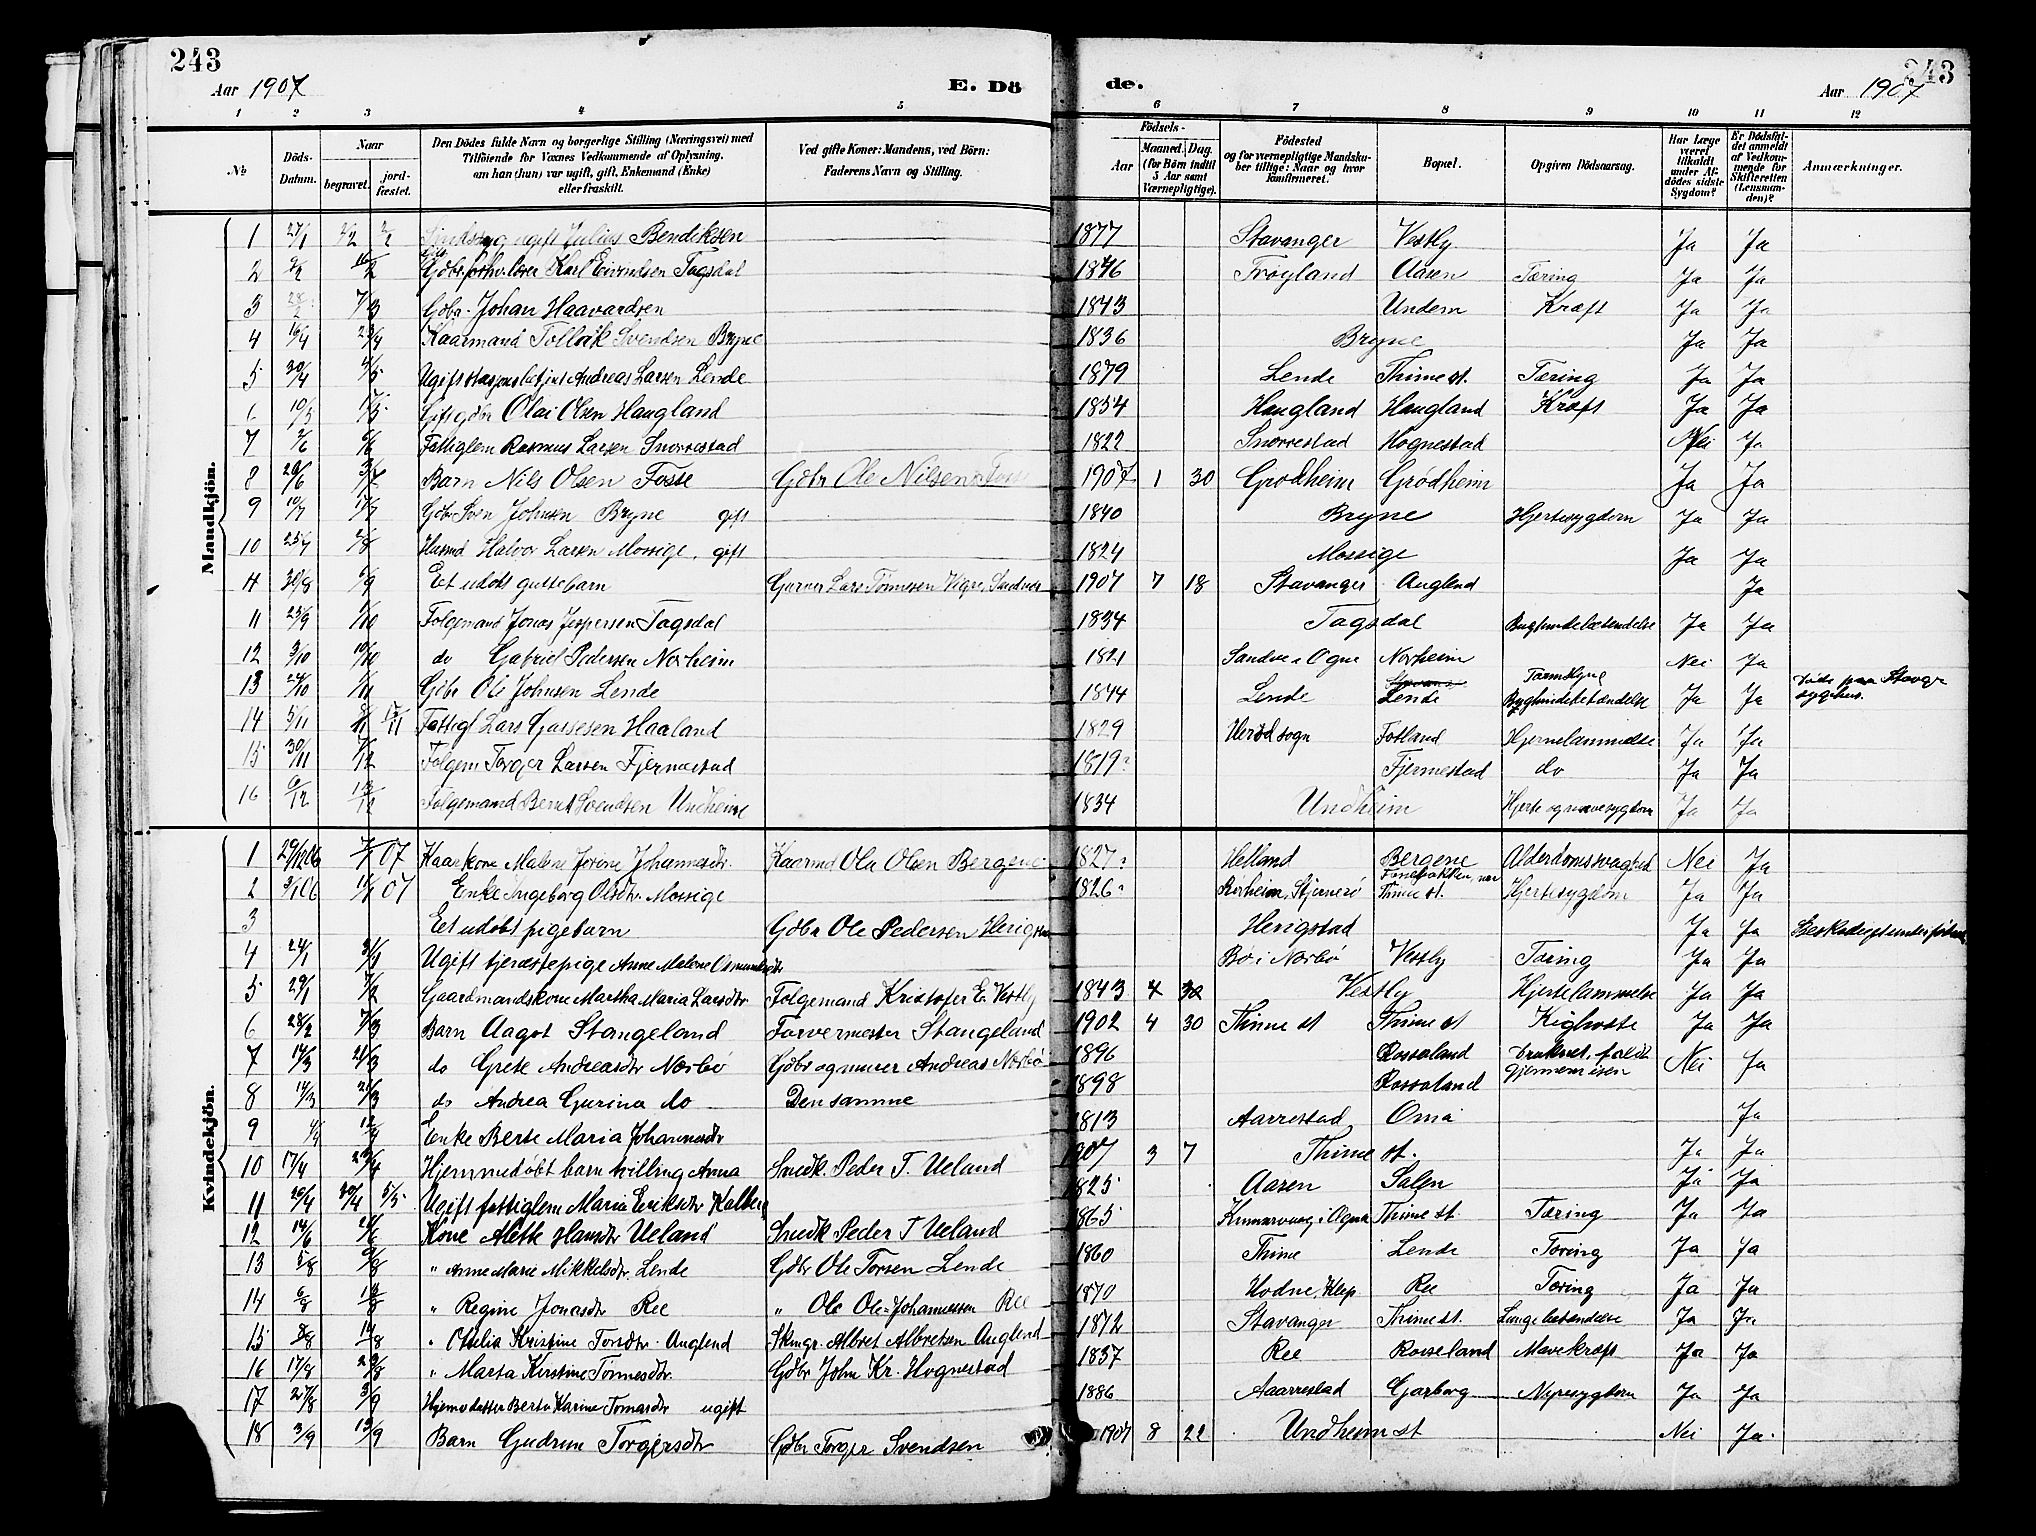 243
Aar 1907
E. Dö
de.
Aar 1907
243
1 2 3 4 5 6 7 8 9 10 11 12
№
Döds-Datum.
Naar
begravet.
jord-fæstet.
Den Dödes fulde Navn og borgerlige Stilling (Næringsvei) med
Tilföiende for Voxnes Vedkommende af Oplysning,
om han (hun) var ugift, gift, Enkemand (Enke)
eller fraskilt.
Ved gifte Koner: Mandens, ved Börn:
Faderens Navn og Stilling.
Födsels-
Aar
Maaned. Dag.
(for Börn indtil
5 Aar samt
Værnepligtige).
Födested
og for værnepligtige Mandska-
ber tillige: Naar og hvor
konfirmeret.
Bopæl.
Opgiven Dödsaarsag.
Har Læge
været
tilkaldt
under Af-
dödes sidste
Sygdom?
Er Dödsfal-
det anmeldt
af Vedkom-
mende for
Skifteretten
(Lensman-
den)?
Anmærkninger.
Mandkjön.
1 27/1 2/2 2/2 Sindssyg ugift Julius Bendiksen 1877 Stavanger Vestly Ja Ja
2 2/2 16/2 Gdbr. forhv. lærer Karl Eivindsen Tagsdal 1846 Frøyland Aasen Tæring Ja Ja
3 28/2 7/3 Gdbr. Johan Haavardsen 1843 Undem Kræft Ja Ja
4 16/4 23/4 Kaarmand Tollak Svendsen Bryne 1836 Bryne Ja Ja
5 30/4 4/5 Ugift stasjonsbetjent Andreas Larsen Lende 1879 Lende Thime st. Tæring Ja Ja
6 10/5 17/5 Gift gdbr Olai Olsen Haugland 1854 Haugland Haugland Kræft Ja Ja
7 2/6 6/6 Fattiglem Rasmus Larsen Snorrestad 1822 Snorrestad Hognestad Nei Ja
8 20/6 3/7 Barn Nils Olsen Fosse Gdbr Ole Nilsen Fosse 1907 1 30 Grødheim Grødheim Ja Ja
9 10/7 17/7 Gdbr Sven Johnsen Bryne gift 1840 Bryne Hjertesygdom Ja Ja
10 25/7 2/8 Husmd Halvor Larsen Mossige, gift 1824 Mossige Ja Ja
H 30/8 5/9 Eet udøbt guttebarn Garver Lars Tønnesen Vigre, Sandnes 1907 7 18 Stavanger Auglend Ja
11 25/9 2/10 Folgemand Jonas Jespersen Tagsdal 1834 Tagsdal Bughindebetændelse Ja Ja
12 3/10 10/10 do Gabriel Pedersen Norheim 1821 Sandve i Ogne Norheim Nei Ja
13 24/10 2/11 Gdbr Ole Johnsen Lende 1844 Lende Lende Tarmslyng Bughindebetændelse Ja Ja Døde paa Stavgr sygehus.
14 5/11 8/11 15/11 Fattigl Lars Gassesen Haaland 1829 Fotland Hjernelammelse Ja Ja
15 30/11 7/12 Folgem Torger Larsen Fjermestad 1819? Fjermestad do Ja Ja
16 6/12 13/12 Folgemand Bernt Svendsen Undheim 1834 Undheim Hjerte og nervesygdom Ja Ja
Kvindekjön.
1 29/12 06 7/1 07 Kaarkone Malene Jorine Johannesdtr. Kaarmd Ola Olsen Bergene 1827? Helland Bergene Alderdomssvaghed Nei Ja
2 3/1 06 11/1 07 Enke Ingeborg Olsdtr. Mossige 1826? Rørheim, Stjernerø Thime st. Hjertesygdom Ja Ja
3 Eet udøbt pigebarn Gdbr Ole Pedersen Herigstad Herigstad Ja Ja Beskadiget under fødsel
4 24/1 31/1 Ugift tjenestepige Anne Malene Osmundsdtr Bø i Nærbø Vestly Tæring Ja Ja
5 29/1 7/2 Gaardmandskone Martha Maria Larsdtr Folgemand Kristofer E. Vestly 1843 4 30 Vestly Hjertelammelse Ja Ja
6 28/2 7/3 Barn Aagot Stangeland Farvermester Stangeland 1902 4 30 Thime st Thime st Kighoste Ja Ja
7 14/3 21/3 do Grete Andreasdtr Nærbø Gdbr og murer Andreas Nærbø 1896 Rossaland Druknet, faldt gjennem isen Nei Ja
8 14/3 21/3 do Andrea Gurina do Den samme 1898 Rossaland
9 4/4 12/4 Enke Berte Maria Johannesdtr 1813 Aarrestad Oma Ja
10 17/4 20/4 Hjemmedøbt barn tvilling Anna Snedk. Peder T. Ueland 1907 3 7 Thime st. Ja Ja
11 20/4 30/4 5/5 Ugift fattiglem Maria Eriksdtr Kalberg 1825 Aasen Salen Ja Ja
12 14/6 21/6 Kone Alette Hansdtr Ueland Snedk Peder T Ueland 1865 Thime st. Tæring Ja Ja
13 5/8 9/8 " Anne Marie Mikkelsdtr. Lende Gdbr Ole Torsen Lende 1860 Thime Lende Tæring Ja Ja
14 6/8 12/8 " Regine Jonasdtr Ree " Ole Ole-Johannessen Ree 1870 Hodne, Klep Ree Tæring Ja Ja
15 8/8 14/8 " Otilia Kristine Torsdtr. Auglend Skingr. Albret Albretsen Auglend 1872 Stavanger Thime st. Lungebetændelse Ja Ja
16 17/8 23/8 " Marta Kirstine Tønnesdtr. Gdbr John Kr. Hognestad 1837 Ree Roiseland Mavekræft Ja Ja
17 27/8 3/9 Hjemv. datter Berta Karine Tomasdtr ugift 1886 Aarrestad Garborg Nyresygdom Ja Ja
18 3/9 13/9 Barn Gudrun Torgersdtr Gdbr Torger Svendsen 1907 8 22 Undheim st Nei Ja